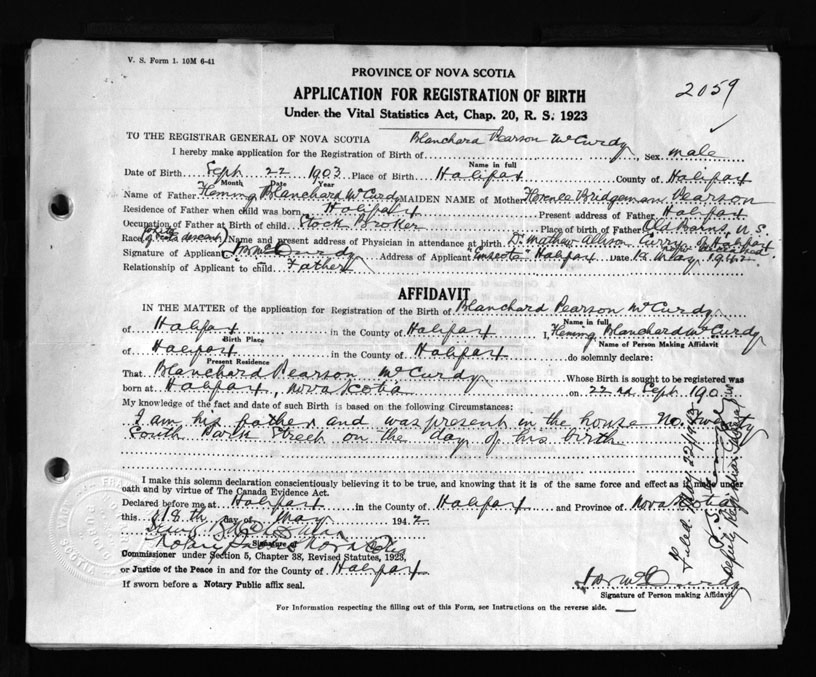 V. S. Form 1. 10M 6-41
PROVINCE OF NOVA SCOTIA
2059
APPLICATION FOR REGISTRATION OF BIRTH
Under the Vital Statistics Act, Chap. 20, R. S. 1923
TO THE REGISTRAR GENERAL OF NOVA SCOTIA
I hereby make application for the Registration of Birth of Blanchard Pearson McCurdy, Sex male
Name in full
Date of Birth Sept 22 1903 Place of Birth Halifax County of Halifax
Month Date Year
Name of Father Fleming Blanchard McCurdy MAIDEN NAME of Mother Florence Bridgeman Pearson
Residence of Father when child was born Halifax Present address of Father Halifax
Occupation of Father at Birth of child Stock Broker Place of birth of Father Old Barns, N.S.
Race Name and present address of Physician in attendance at birth Dr. Mathew Allison Curry Halifax
Signature of Applicant F B McCurdy Address of Applicant "Emscote" Halifax Date 18 May 1942
Relationship of Applicant to child Father
AFFIDAVIT
IN THE MATTER of the application for Registration of the Birth of Blanchard Pearson McCurdy
Name in full
of Halifax in the County of Halifax I, Fleming Blanchard McCurdy
Birth Place Name of Person Making Affidavit
of Halifax in the County of Halifax do solemnly declare:
Present Residence
That Blanchard Pearson McCurdy Whose Birth is sought to be registered was
born at Halifax, Nova Scotia on 22nd Sept 1903
My knowledge of the fact and date of such Birth is based on the following Circumstances:
I am his father and was present in the house No. twenty
South Park Street on the day of his birth
I make this solemn declaration conscientiously believing it to be true, and knowing that it is of the same force and effect as if made under
oath and by virtue of The Canada Evidence Act.
Declared before me at Halifax in the County of Halifax and Province of Nova Scotia
this 18th day of May 1942
Signature of
Commissioner under Section 5, Chapter 38, Revised Statutes, 1923,
or Justice of the Peace in and for the County of Halifax
If sworn before a Notary Public affix seal.
F B McCurdy
Signature of Person making Affidavit
For Information respecting the filling out of this Form, see Instructions on the reverse side.
Filed
Deputy Registrar General